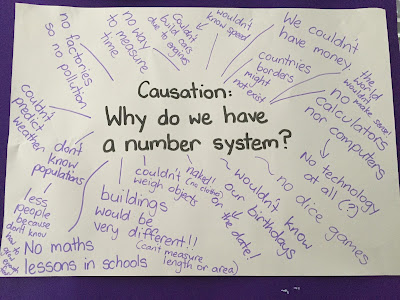 Causation:
Why do we have
a number system?
no factories
so no pollution
no way
to measure
time
Couldn't
build cars
due to engines
wouldn't
know speed
We couldn't
have money
countries
borders
might
not exist
the
world
wouldn't
make sense!
no
calculators
nor computers
No technology
at all (?)
no dice games
wouldn't know
our birthdays
or
the date!
naked!
(no clothes)
couldn't
weigh objects
buildings
would be
very different!!
(can't measure
length or area)
couldn't
predict
weather
dont
know
populations
less
people
because
don't know
No maths
lessons in schools